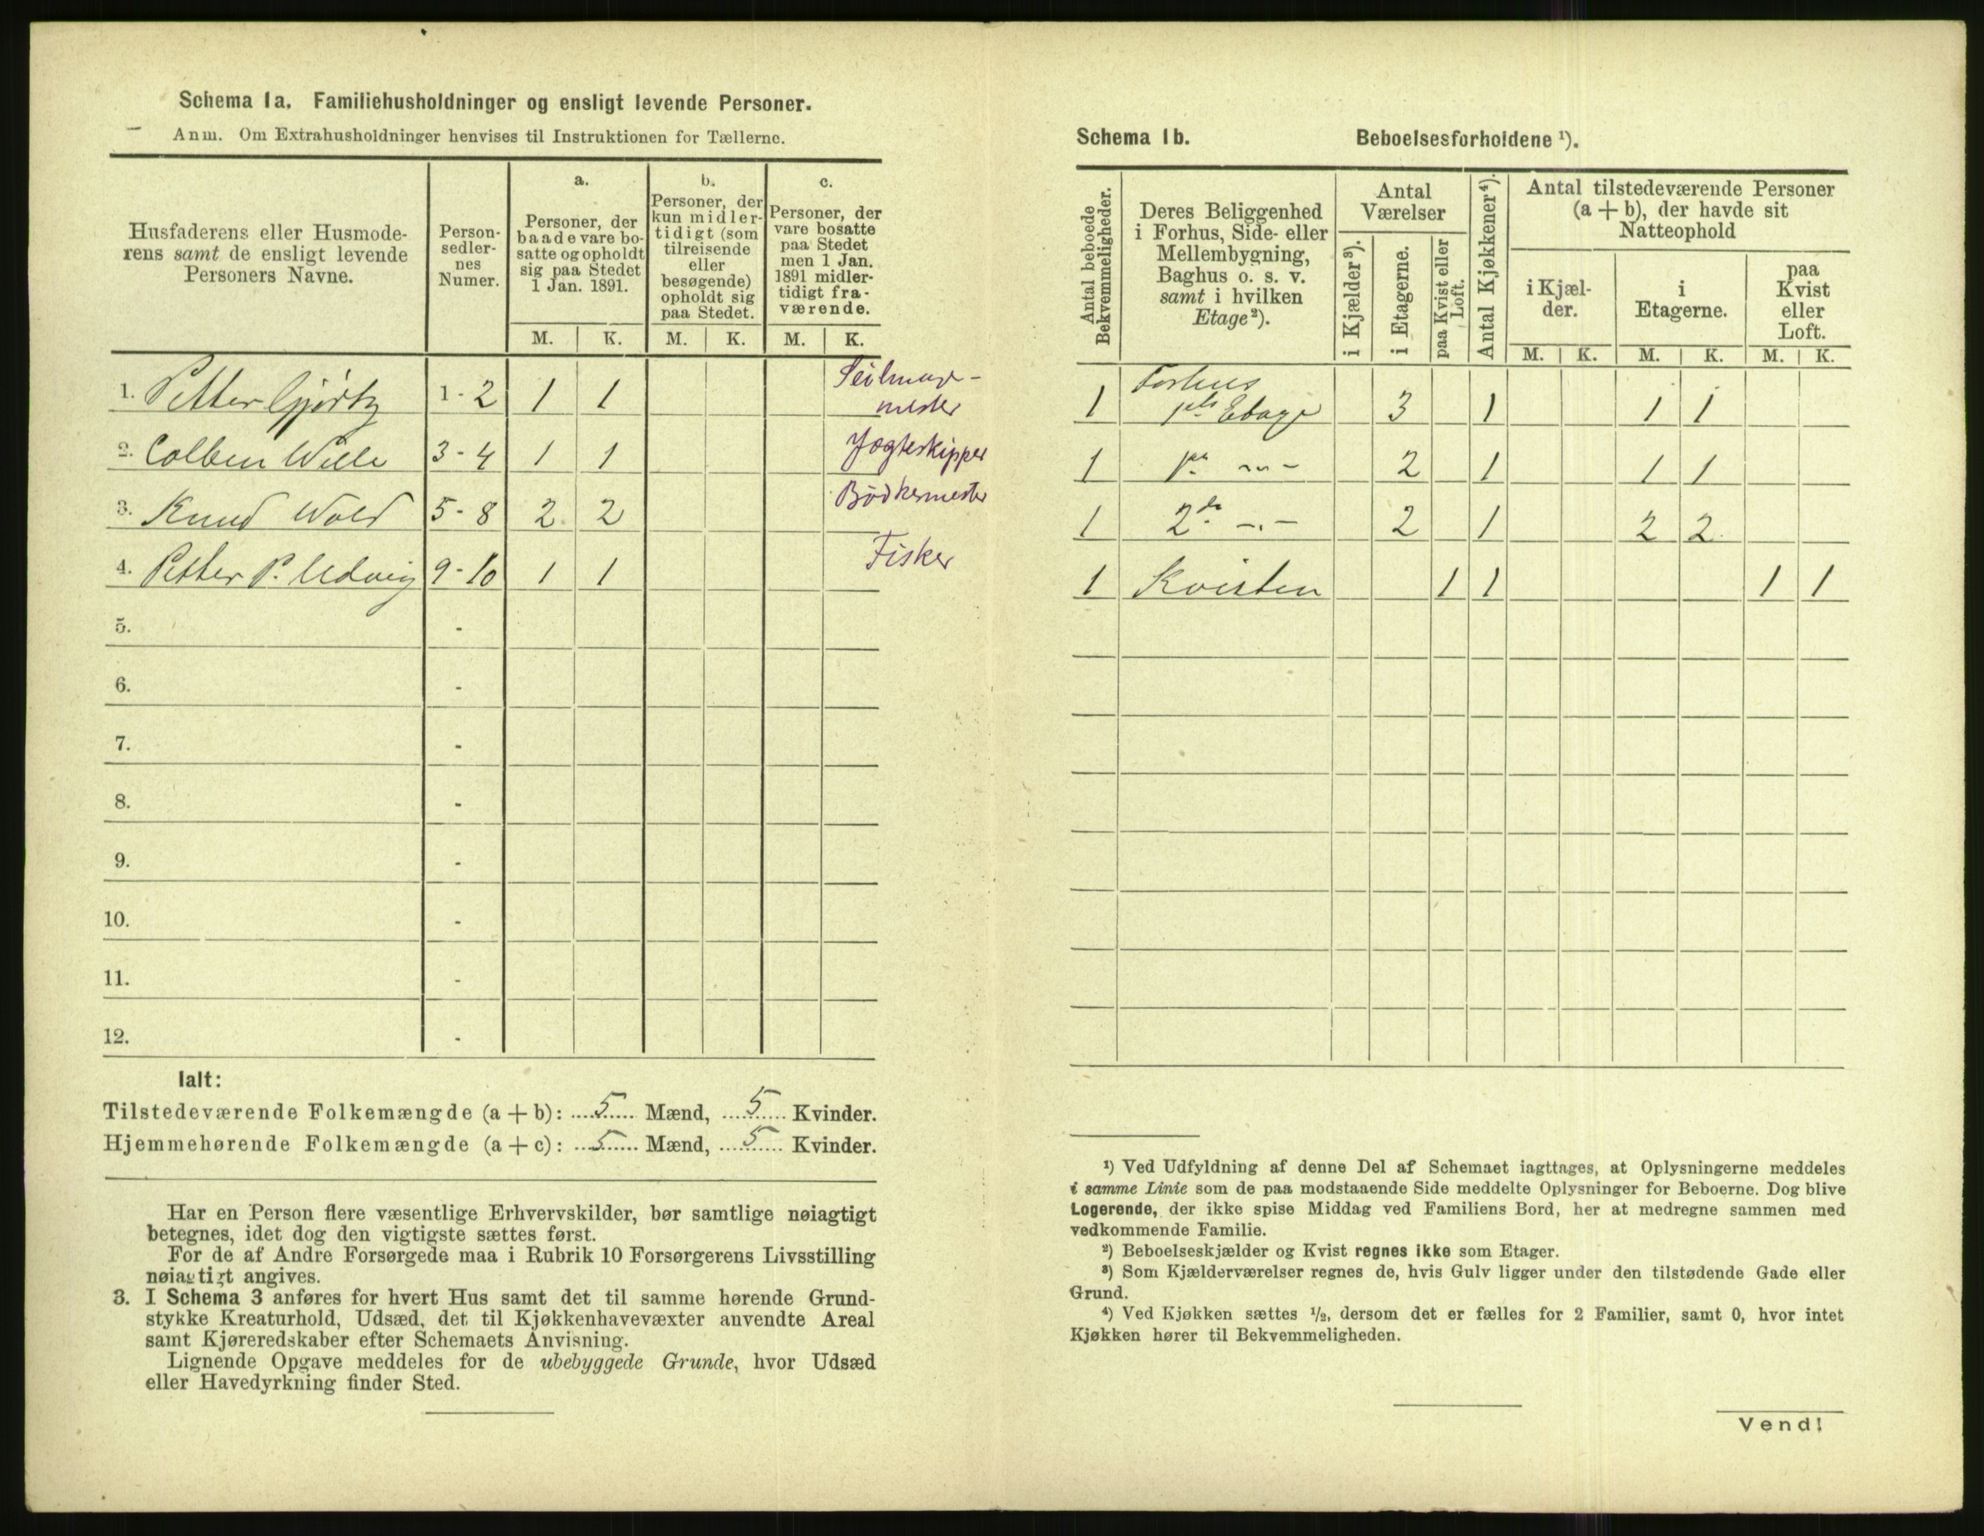 Schema 1a. Familiehusholdninger og ensligt levende Personer.
Anm. Om Extrahusholdninger henvises til Instruktionen for Tællerne.
Husfaderens eller Husmode-
rens samt de ensligt levende
Personers Navne.
Person-
sedler-
nes
Numer.
a.
Personer, der
baade vare bo-
satte og opholdt
sig paa Stedet
1 Jan. 1891.
b.
Personer, der
kun midler-
tidigt (som
tilreisende
eller
besøgende)
opholdt sig
paa Stedet.
c.
Personer, der
vare bosatte
paa Stedet
men 1 Jan.
1891 midler-
tidigt fra-
værende.
M. K. M. K. M. K.
1. Petter Gjörtz 1 - 2 1 1 Seilmager-
mester
2. Colben Wiele 3 - 4 1 1 Jægteskipper
3. Knud Wold 5 - 8 2 2 Bødkermester
4. Petter P. Udvig 9 - 10 1 1 Fisker
5. -
6. -
7. -
8. -
9. -
10. -
11. -
12. -
Ialt:
Tilstedeværende Folkemængde (a + b): 5 Mænd, 5 Kvinder.
Hjemmehørende Folkemængde (a + c): 5 Mænd, 5 Kvinder.
Har en Person flere væsentlige Erhvervskilder, bør samtlige nøiagtigt
betegnes, idet dog den vigtigste sættes først.
For de af Andre Forsørgede maa i Rubrik 10 Forsørgerens Livsstilling
nøiagtigt angives.
3. I Schema 3 anføres for hvert Hus samt det til samme hørende Grund-
stykke Kreaturhold, Udsæd, det til Kjøkkenhavevæxter anvendte Areal
samt Kjøreredskaber efter Schemaets Anvisning.
Lignende Opgave meddeles for de ubebyggede Grunde, hvor Udsæd
eller Havedyrkning finder Sted.
Schema 1b. Beboelsesforholdene ¹).
Antal beboede
Bekvemmeligheder.
Deres Beliggenhed
i Forhus, Side- eller
Mellembygning,
Baghus o. s. v.
samt i hvilken
Etage²).
Antal
Værelser
i Kjælder³).
i Etagerne.
paa Kvist eller
Loft.
Antal Kjøkkener⁴).
Antal tilstedeværende Personer
(a + b), der havde sit
Natteophold
i Kjæl-
der.
i
Etagerne.
paa
Kvist
eller
Loft.
M. K. M. K. M. K.
1 Forhus
1ste Etage 3 1 1 1
1 1ste -"- 2 1 1 1
1 2de -"- 2 1 2 2
1 Kvisten 1 1 1 1
¹) Ved Udfyldning af denne Del af Schemaet iagttages, at Oplysningerne meddeles
i samme Linie som de paa modstaaende Side meddelte Oplysninger for Beboerne. Dog blive
Logerende, der ikke spise Middag ved Familiens Bord, her at medregne sammen med
vedkommende Familie.
²) Beboelseskjælder og Kvist regnes ikke som Etager.
³) Som Kjælderværelser regnes de, hvis Gulv ligger under den tilstødende Gade eller
Grund.
⁴) Ved Kjøkken sættes ½, dersom det er fælles for 2 Familier, samt 0, hvor intet
Kjøkken hører til Bekvemmeligheden.
Vend!